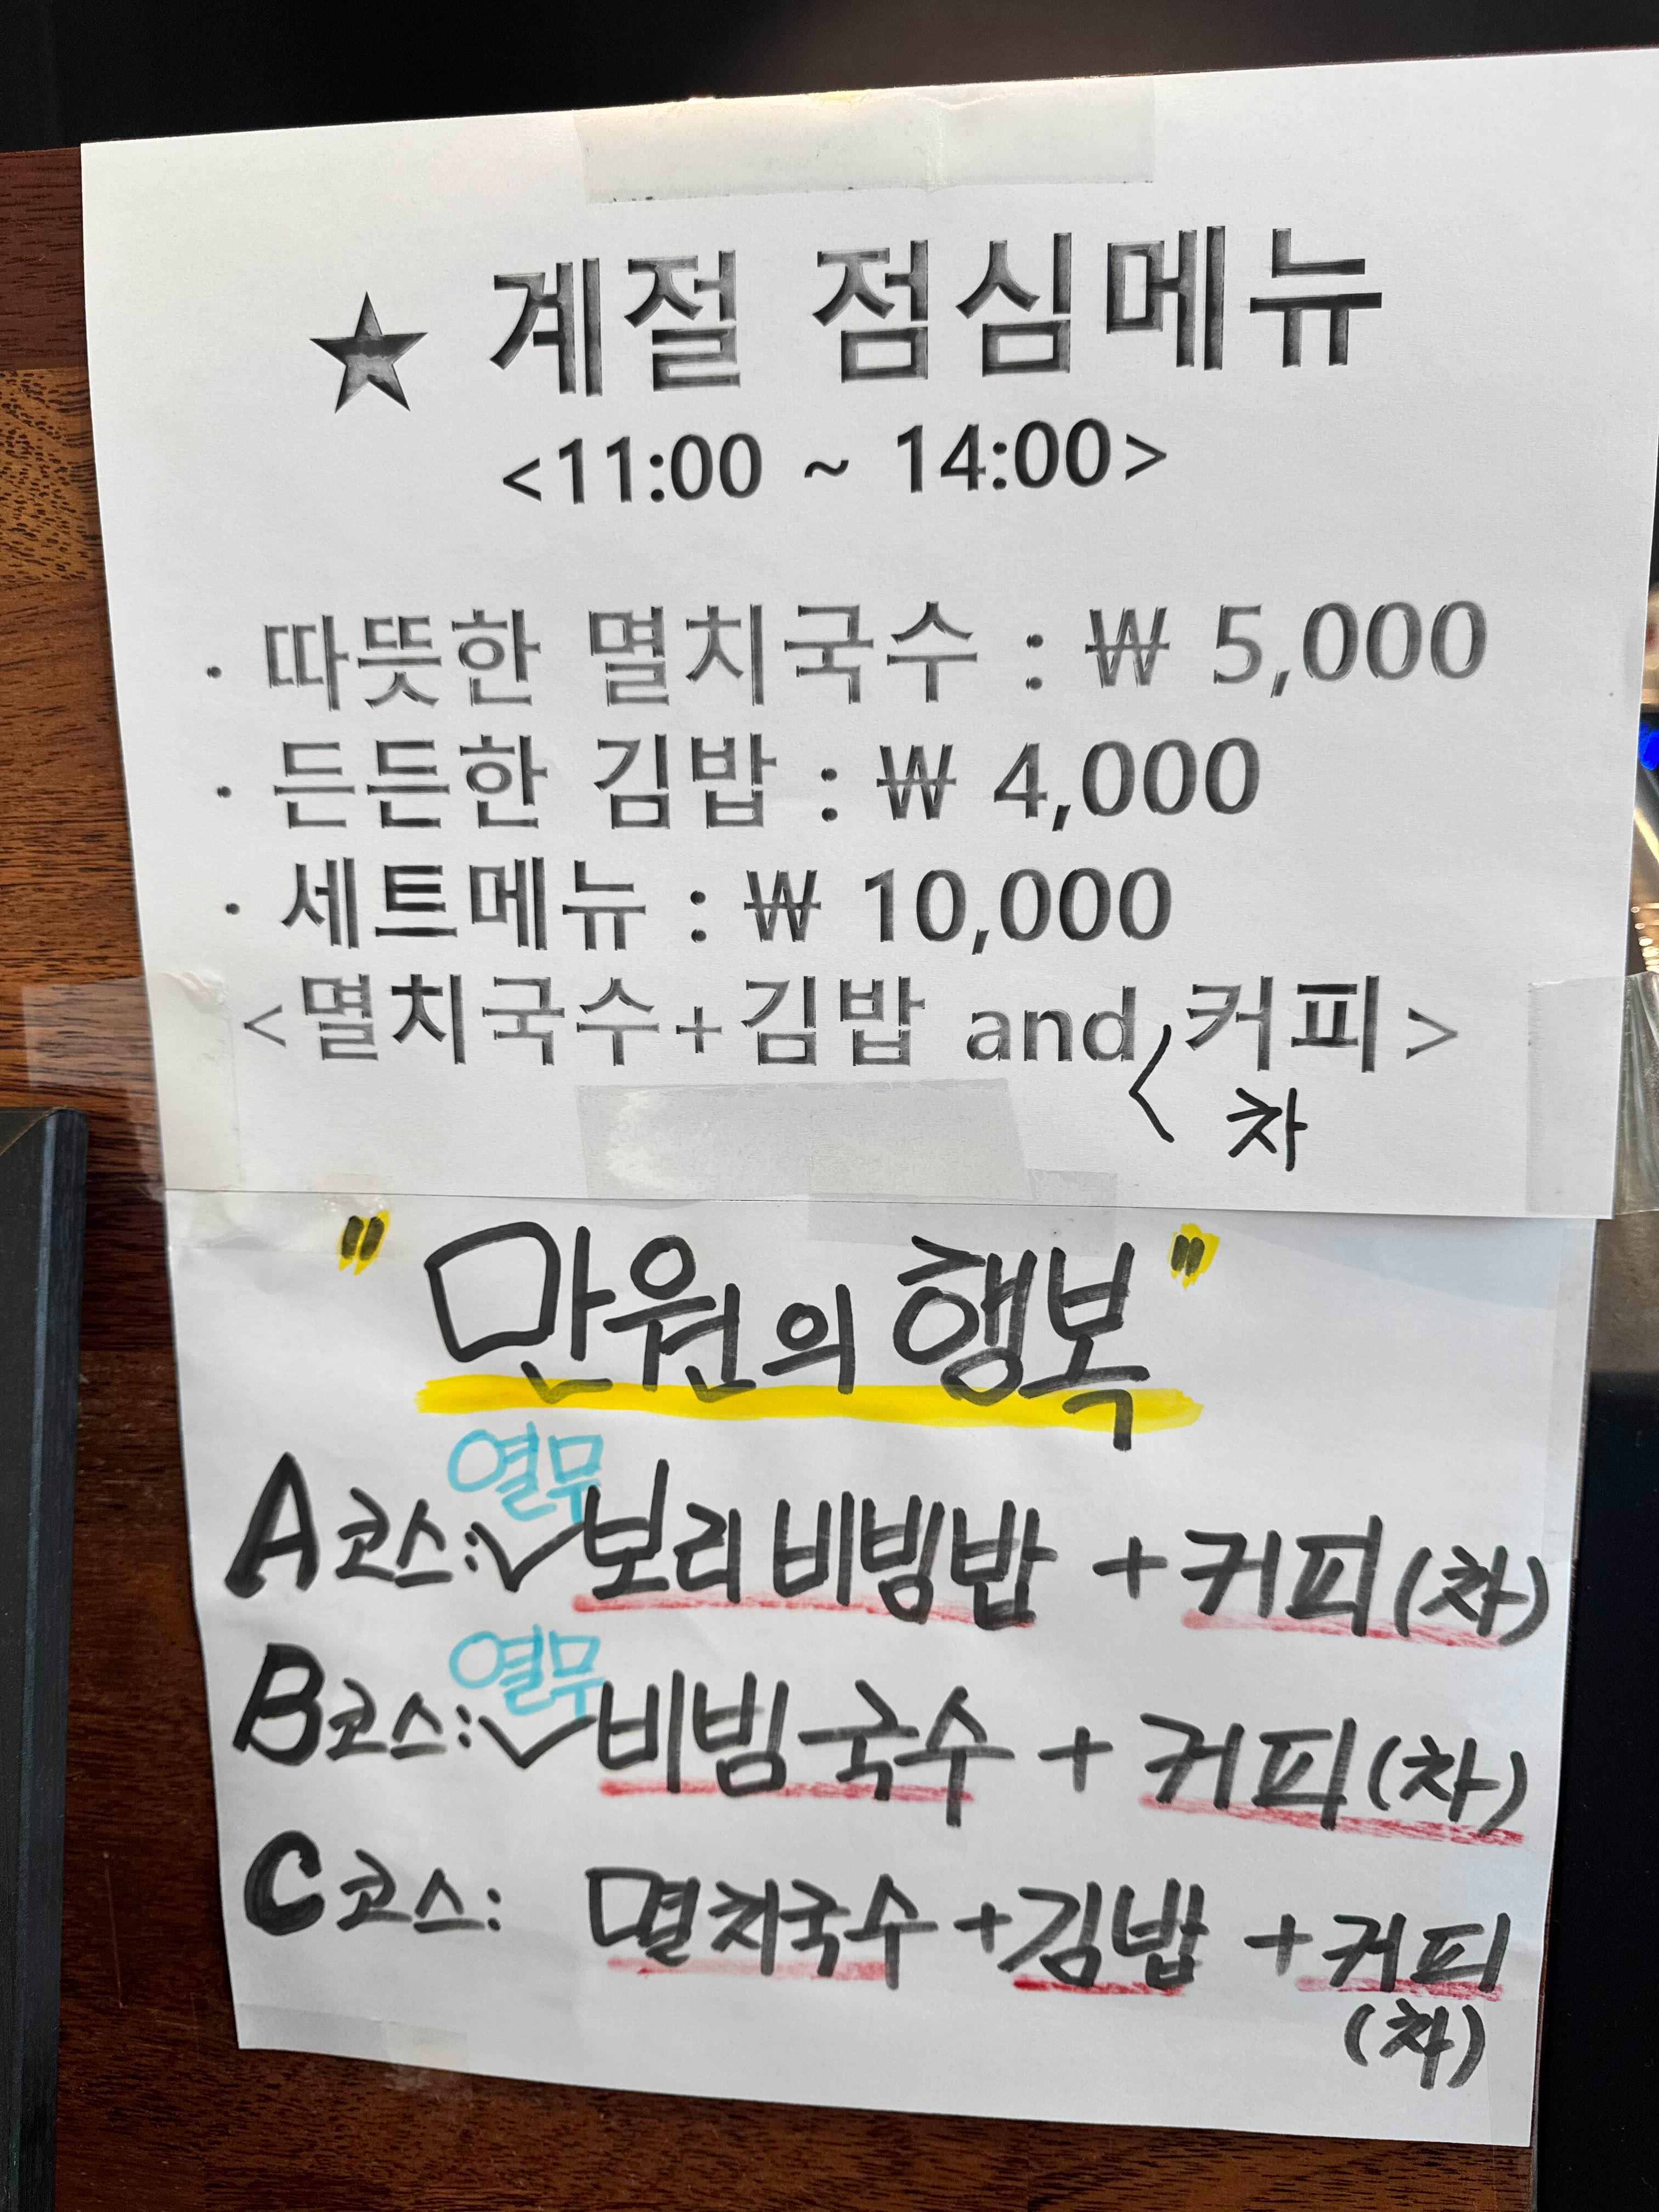 ★ 계절 점심메뉴
<11:00 ~ 14:00>
· 따뜻한 멸치국수 : ₩ 5,000
· 든든한 김밥 : ₩ 4,000
· 세트메뉴 : ₩ 10,000
<멸치국수+김밥 and 커피>
차
"만원의 행복"
열무
A코스: 보리비빔밥 + 커피(차)
열무
B코스: 비빔국수 + 커피(차)
C코스: 멸치국수+김밥 + 커피
(차)